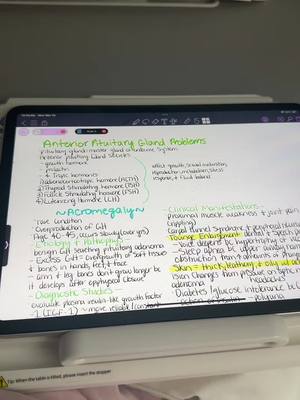 Anterior Pituitary Gland Problems
Pituitary gland: master gland of endocrine system
Anterior pituitary Gland Secretes
- growth hormone
- prolactin
- 4 Tropic hormones
1) Adrenocorticotropic hormone (ACTH)
2) Thyroid Stimulating hormone (TSH)
3) Follicle Stimulating hormone (FSH)
4) Luteinizing Hormone (LH)
affect growth, sexual maturation,
reproduction, metabolism, stress
response, & fluid balance
~Acromegaly~
rare condition
Overproduction of GH
(Age 40-45, occurs slowly (over yrs)
- Etiology & Patho
benign GH secreting pituitary adenoma
- Excess GH = overgrowth of soft tissue
& bones in hands, feet & face
- arm & leg bones don't grow longer bc
it develops after epiphyseal closure
- Diagnostic Studies -
evaluate plasma insulin-like growth factor
-1 (IGF-1) → more reliable
- Clinical Manifestations -
proximal muscle weakness & joint pain
crippling)
Carpal Tunnel Syndrome & peripheral
Tongue Enlargement
- voice deepens bc hypertrophy of
- Sleep apnea bc
obstruction from
Skin = thick, leathery, & oily
Vision changes from pressure on
adenoma
headaches
- Diabetes/glucose intolerance
polyuria
Tip: When the table is tilted, please insert the stopper